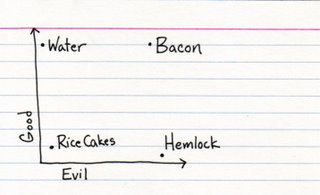 Water
Bacon
Good
Rice Cakes
Hemlock
Evil